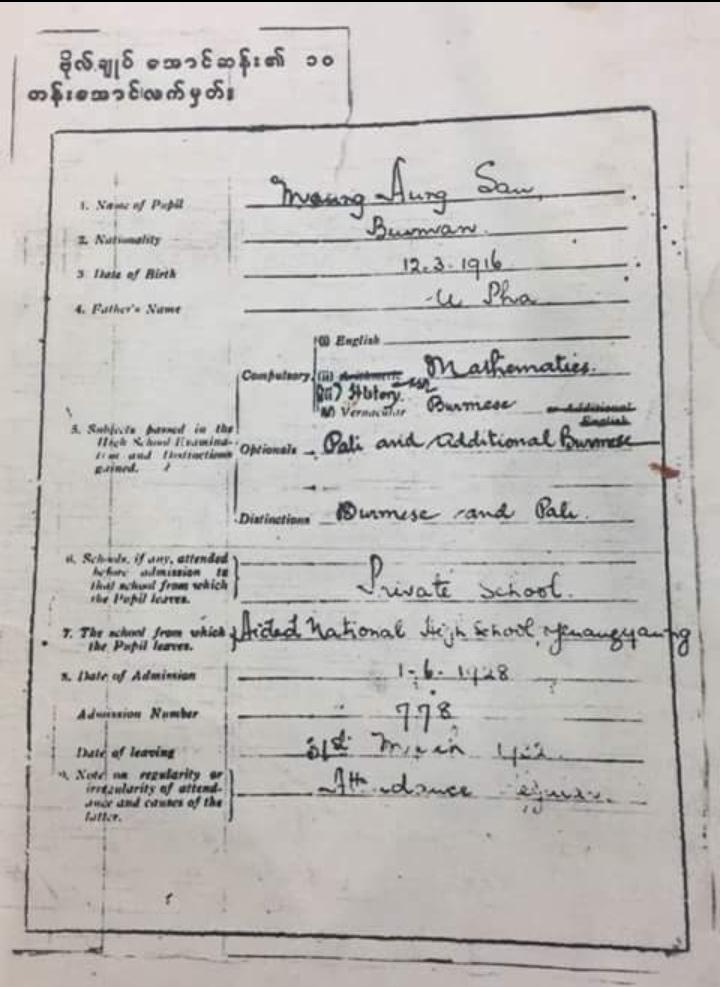 ဗိုလ်ချုပ် အောင်ဆန်း၏ ၁၀
တန်းအောင်လက်မှတ်း
1. Name of Pupil Maung Aung San
2. Nationality Burman.
3 Date of Birth 12.3.1916
4. Father's Name U Pha
5. Subjects passed in the High School Examination and Distinctions gained.
Compulsory
(i) English
(ii) Mathematics.
(iii) History.
(iv) Vernacular Burmese or Additional English
Optionals Pali and Additional Burmese
Distinctions Burmese and Pali.
6. Schools, if any, attended
before admission to
that school from which
the Pupil leaves.
Private School.
7. The school from which
the Pupil leaves.
Aided National High School, Yenangyaung
8. Date of Admission 1-6-1928
Admission Number 778
Date of leaving 31st
9. Note on regularity or
irregularity of attend-
ance and causes of the
latter.
Attendance